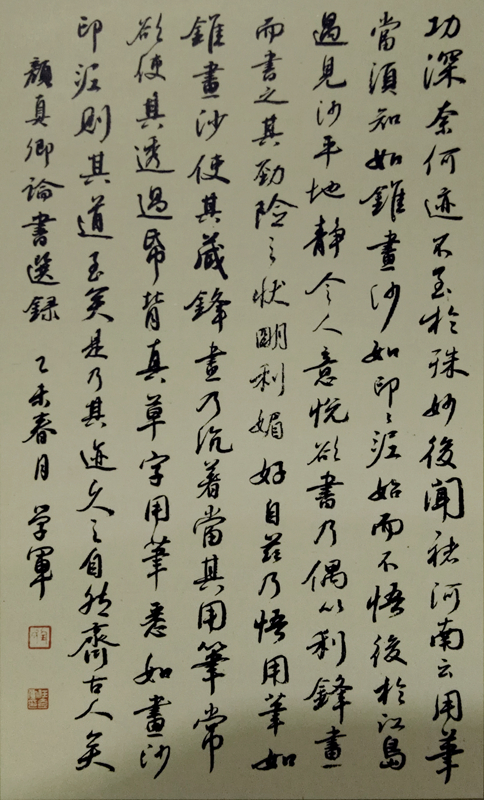 功深奈何迹不至於殊妙後聞褚河南云用筆
當須知如錐畫沙如印印泥始而不悟後於江島
遇見沙平地靜令人意悅欲書乃偶以利鋒畫
而書之其勁險之狀明利媚好自茲乃悟用筆如
錐畫沙使其藏鋒畫乃沉著當其用筆常
欲使其透過帋背真草字用筆悉如畫沙
印泥則其道至矣是乃其迹久之自然齊古人矣
顏真卿論書選錄 乙未春月 学軍